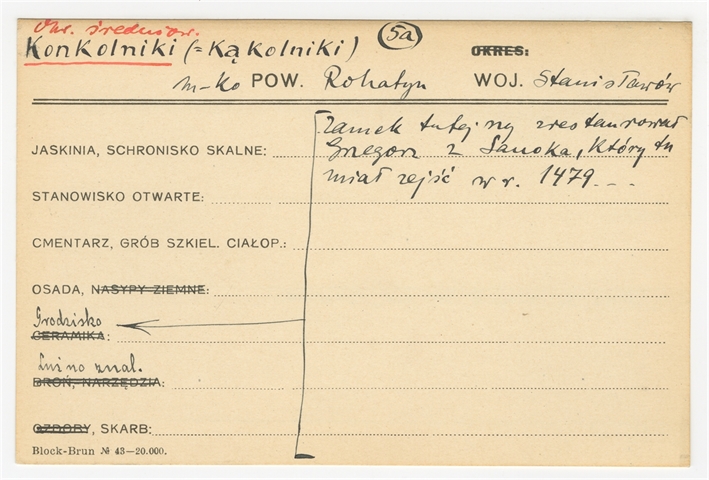 Okr. średniow.
Konkolniki (=Kąkolniki) 5a OKRES:
m-ko POW. Rohatyn WOJ. Stanisławów
Zamek tutejszy zrestaurował
JASKINIA, SCHRONISKO SKALNE: Grzegorz z Sanoka, który tu
miał zejść w r. 1479 ---
STANOWISKO OTWARTE:
CMENTARZ, GRÓB SZKIEL. CIAŁOP.:
OSADA, NASYPY ZIEMNE:
Grodzisko
CERAMIKA:
Luźno znal.
BROŃ, NARZĘDZIA:
OZDOBY, SKARB:
Block-Brun № 43—20.000.